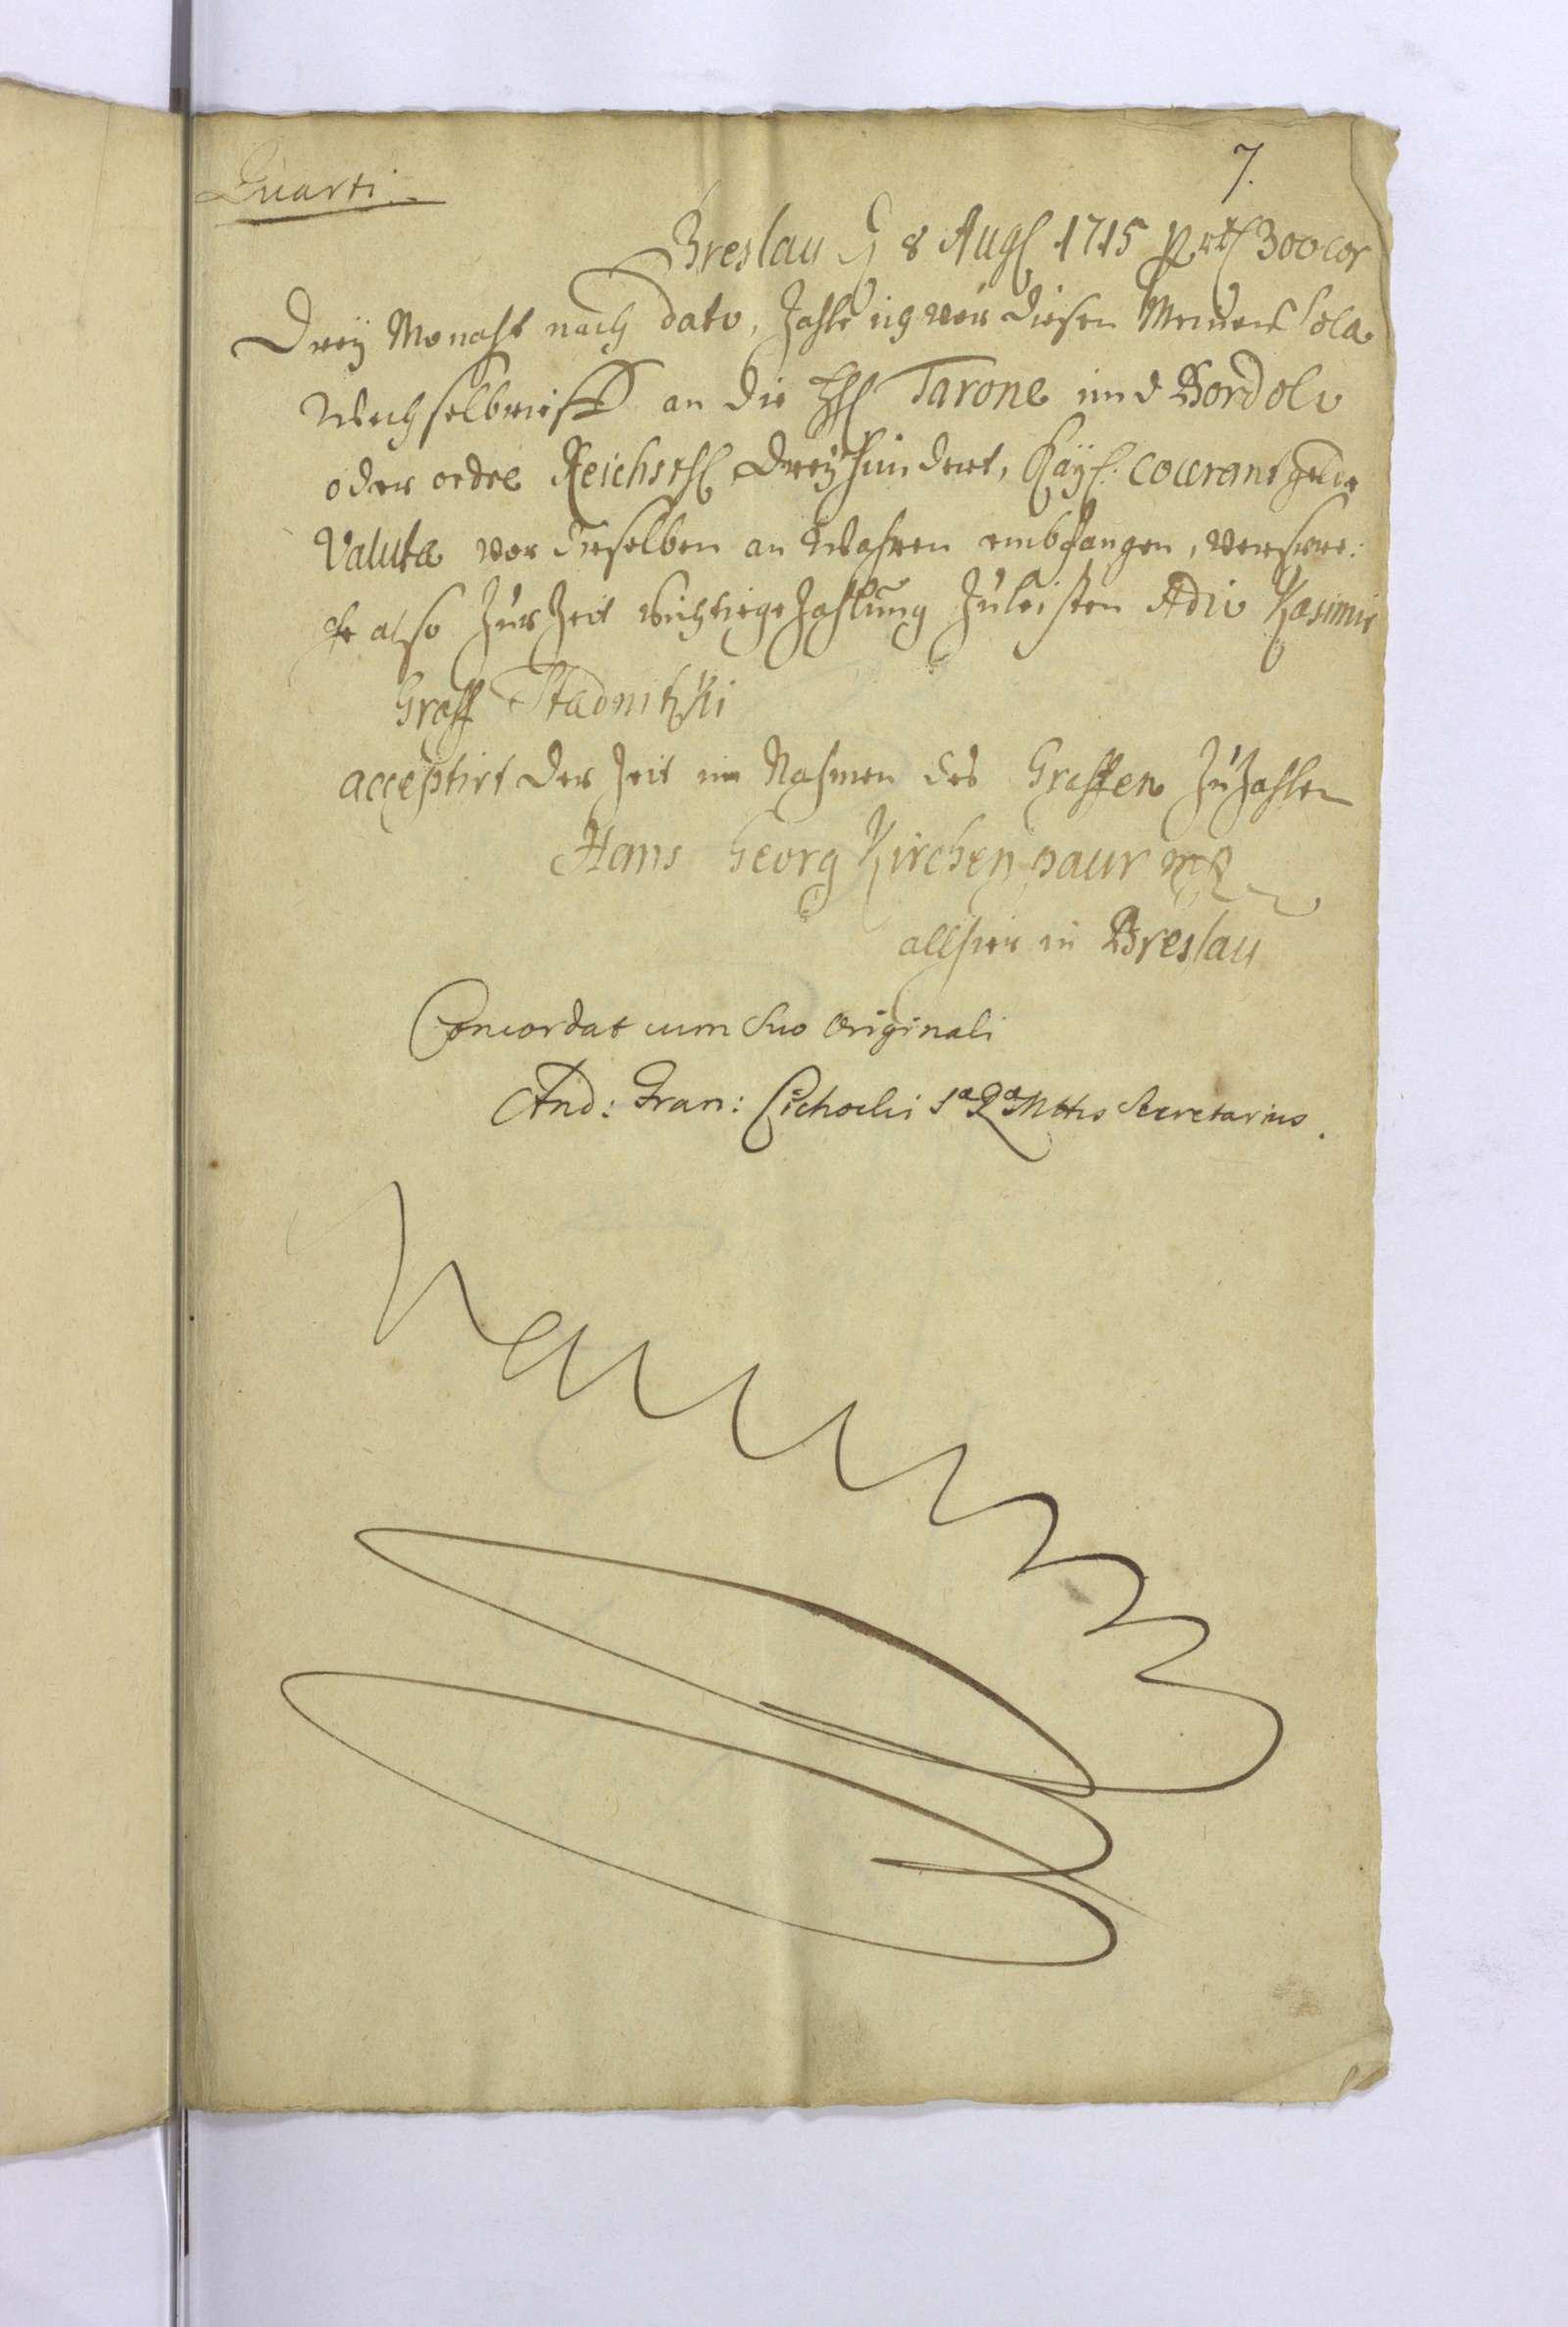 Quarti.
7.
Breslau d 8 Aug 1715 p rt 300 cor
Dreÿ Monaht nach dato, Zahle ich vor diesen Meinen Sola
Wechselbrieff an die HH Tarone und Bordolo
oder ordre Reichsth Dreÿhundert, Kaÿs. Courant geld
Valuta von Denselben an Wahren embfangen, verspre:
che also Zur Zeit richtige Zahlung Zu leisten Adio Kasimir
Graff Stadnitzki
acceptirt der Zeit im Nahmen des Graffen Zu Zahlen
Hans Georg Kirchenpaur
allhier in Breslau
Concordat cum suo Originali
And: Fran: Cichocki Mttis Secretarius.